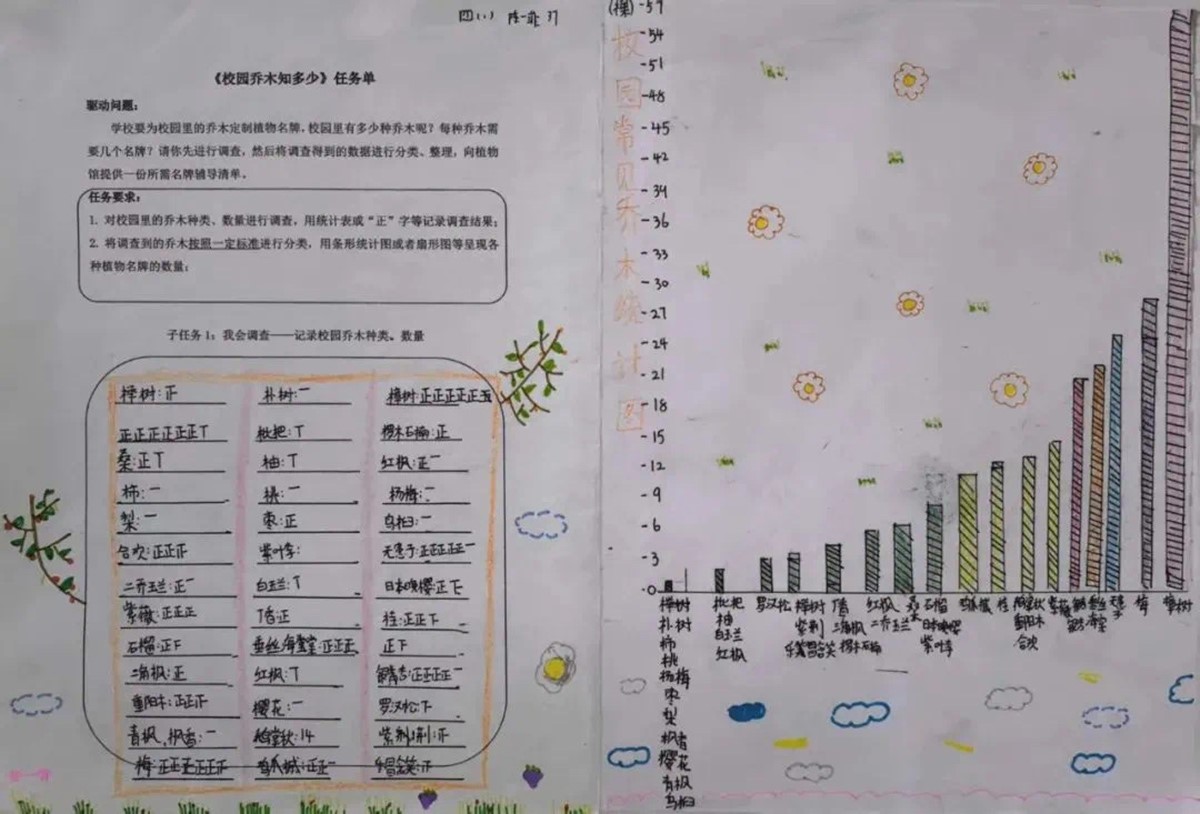 四(1)
《校园乔木知多少》任务单
驱动问题：
学校要为校园里的乔木定制植物名牌，校园里有多少种乔木呢？每种乔木需
要几个名牌？请你先进行调查，然后将调查得到的数据进行分类、整理，向植物
馆提供一份所需名牌辅导清单。
任务要求：
1. 对校园里的乔木种类、数量进行调查，用统计表或“正”字等记录调查结果；
2. 将调查到的乔木按照一定标准进行分类，用条形统计图或者扇形图等呈现各
种植物名牌的数量；
子任务1：我会调查——记录校园乔木种类、数量
榉树:正
正正正正正正丅
桑:正丅
柿:一
梨:一
合欢:正正正
二乔玉兰:正一
紫薇:正正正
石榴:正下
三角枫:正
重阳木:正正正
青枫、枫香:一
梅:正正正正正正
朴树:一
枇杷:丅
柚:丅
桃:一
枣:正
紫叶李:
白玉兰:丅
垂丝海棠:正正正
红枫:丅
樱花:一
14
鸡爪槭:正正一
樟树:正正正正正
椤木石楠:正
红枫:正一
杨梅:一
乌桕:一
无患子:正正正正一
日本晚樱:正下
桂:正正下
正下
银杏:正正正正一
罗汉松:下
紫荆
乐昌含笑:正
校园常见乔木统计图
(棵)-57
-54
-51
-48
-45
-42
-39
-36
-33
-30
-27
-24
-21
-18
-15
-12
-9
-6
-3
-0
榉树
朴树
柿
桃
杨梅
枣
梨
枫香
樱花
青枫
乌桕
枇杷
柚
白玉兰
红枫
罗汉松
榉树
紫荆
乐昌含笑
三角枫
椤木石楠
红枫
二乔玉兰
桑
石榴
日本晚樱
紫叶李
桂
重阳木
合欢
紫薇
梅